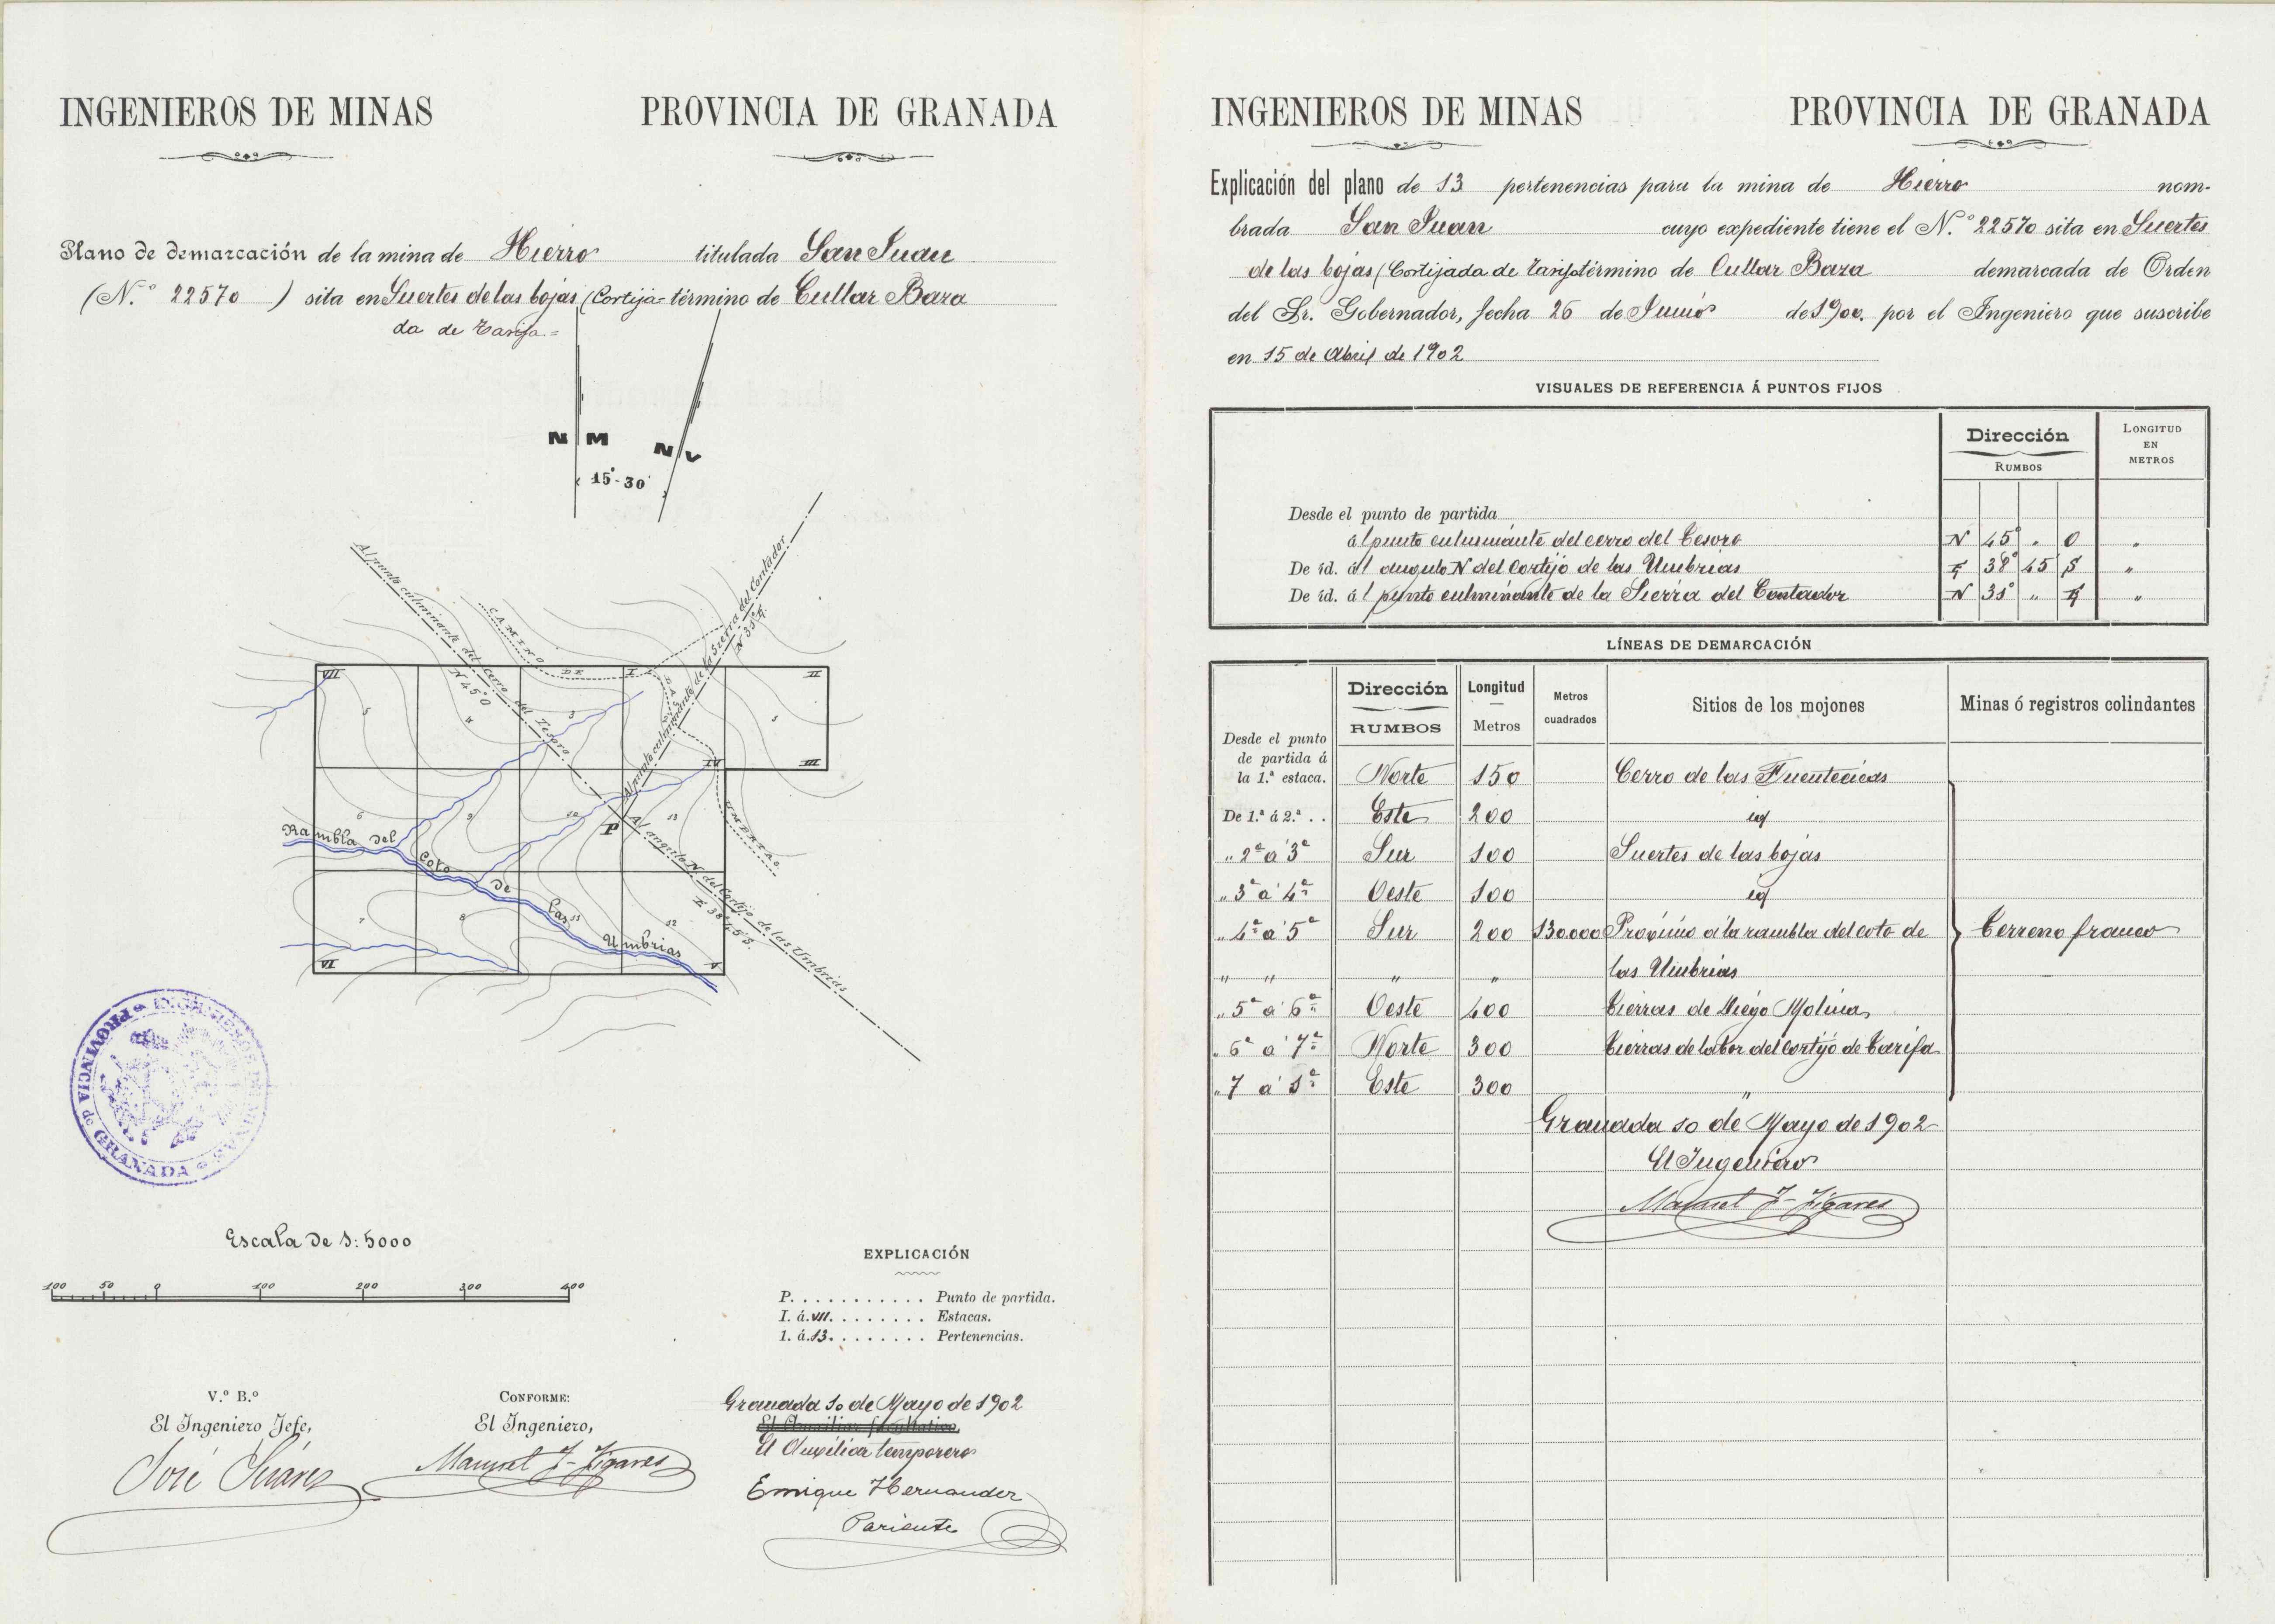 INGENIEROS DE MINAS PROVINCIA DE GRANADA
Plano de demarcación de la mina de Hierro titulada San Juan
(N.º 22570 ) sita en Suertes de las bojas (Cortija- término de Cullar Baza
da de Tarifa.=
N M N V
15º-30'
Al punto culminante del Cerro del Tesoro
N 45º O
Al punto culminante de la Sierra del Contador
N 35º E
CAMINO DE LAS UMBRIAS
VII I II
5 4 3 1
IV III
6 9 10 13
P
Al angulo N del Cortijo de las Umbrias
E 38º 45' S.
Rambla del Coto De las Umbrias
7 8 11 12
VI V
INGENIEROS DE MINAS PROVINCIA DE GRANADA
Escala De 1:5000
100 50 0 100 200 300 400
EXPLICACIÓN
P. . . . . . . . . . . . Punto de partida.
I. á VII. . . . . . . . . Estacas.
1. á 13. . . . . . . . . Pertenencias.
V.º B.º
El Ingeniero Jefe,
José Suárez
CONFORME:
El Ingeniero,
Manuel F- Fígares
Granada 10 de Mayo de 1902
El Auxiliar facultativo,
El Auxiliar temporero
Enrique Hernandez
Pariente
INGENIEROS DE MINAS PROVINCIA DE GRANADA
Explicación del plano de 13 pertenencias para la mina de Hierro nom-
brada San Juan cuyo expediente tiene el N.º 22570 sita en Suertes
de las bojas (Cortijada de Tarifa término de Cullar Baza demarcada de Orden
del Sr. Gobernador, fecha 26 de Junio de 1900. por el Ingeniero que suscribe
en 15 de Abril de 1902
VISUALES DE REFERENCIA Á PUNTOS FIJOS
Dirección LONGITUD EN METROS
RUMBOS
Desde el punto de partida
ál punto culminánte del cerro del Tesoro N 45º „ O „
De id. ál angulo N del Cortijo de las Umbrias E 38º 45 S „
De id. ál punto culminante de la Sierra del Contador N 35º „ E „
LÍNEAS DE DEMARCACIÓN
Dirección Longitud Metros cuadrados Sitios de los mojones Minas ó registros colindantes
RUMBOS Metros
Desde el punto
de partida á
la 1.ª estaca. Norte 150 Cerro de las Fuentecicas
De 1.ª á 2.ª . . Este 200 id
„ 2ª a 3ª Sur 100 Suertes de las bojas
„ 3ª a 4ª Oeste 100 id
„ 4ª a 5ª Sur 200 130.000 Proximo a la rambla del coto de Terreno franco
„ „ „ „ las Umbrias
„ 5ª a 6ª Oeste 400 Tierras de Diego Molina
„ 6ª a 7ª Norte 300 Tierras de labor del Cortijo de Tarifa
„ 7 a 1ª Este 300 „
Granada 10 de Mayo de 1902
El Ingeniero
Manuel F- Fígares